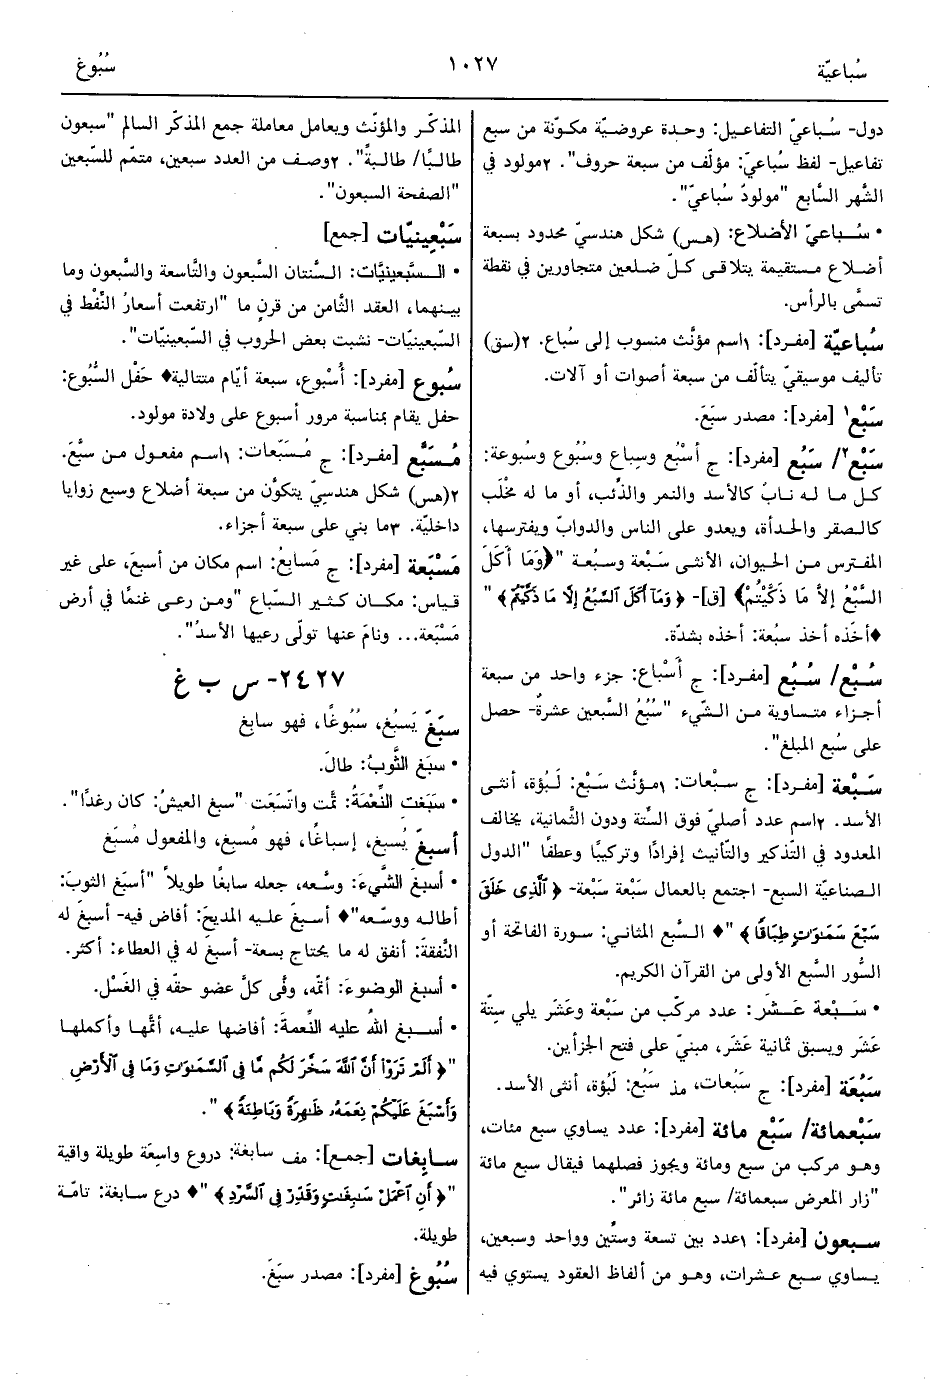 سُباعيّة
١٠٢٧
سُبُوغ
دول- سُباعيّ التفاعيل: وحدة عروضيّة مكوّنة من سبع
تفاعيل- لفظ سُباعيّ: مؤلّف من سبعة حروف". ٢مولود في
الشَّهر السَّابع "مولودٌ سُباعيّ".
• سُباعيّ الأضلاع: (هس) شكل هندسيّ محدود بسبعة
أضلاع مستقيمة يتلاقى كلّ ضلعين متجاورين في نقطة
تسمَّى بالرأس.
سُباعيَّة [مفرد]: ١اسم مؤنَّث منسوب إلى سُباع. ٢(سق)
تأليف موسيقيّ يتألّف من سبعة أصوات أو آلات.
سَبْع١ [مفرد]: مصدر سبَعَ.
سَبْع٢/ سَبُع [مفرد]: ج أَسْبُع وسِباع وسُبُوع وسُبوعة:
كل ما له نابٌ كالأسد والنمر والذِّئب، أو ما له مِخْلَب
كالصقر والحدأة، ويعدو على الناس والدوابّ ويفترسها،
المفترس من الحيوان، الأنثى سَبْعة وسبُعة "﴿وَمَا أَكَلَ
السَّبْعُ إِلاَّ مَا ذَكَّيْتُمْ﴾ [ق]- ﴿وَمَآ أَكَلَ ٱلسَّبُعُ إِلَّا مَا ذَكَّيْتُمْ﴾"
♦أخَذه أخذ سبُعة: أخذه بشدّة.
سُبْع/ سُبُع [مفرد]: ج أَسْباع: جزء واحد من سبعة
أجزاء متساوية من الشّيء "سُبُعُ السَّبعين عشرةٌ- حصل
على سُبع المبلغ".
سَبْعة [مفرد]: ج سبْعات: ١مؤنَّث سَبْع: لَبُؤة، أنثى
الأسد. ٢اسم عدد أصليّ فوق السِّتة ودون الثَّمانية، يخالف
المعدود في التذكير والتأنيث إفرادًا وتركيبًا وعطفًا "الدول
الصناعيَّة السبع- اجتمع بالعمال سَبْعة سَبْعة- ﴿ٱلَّذِى خَلَقَ
سَبْعَ سَمَـٰوَٰتٍ طِبَاقًا﴾"♦ السَّبع المثاني: سورة الفاتحة أو
السُّور السَّبع الأولى من القرآن الكريم.
• سَبْعة عَشَرَ: عدد مركَّب من سَبْعة وعَشَر يلي سِتَّة
عَشَر ويسبق ثمانية عَشَر، مبنيّ على فتح الجزأين.
سَبُعَة [مفرد]: ج سَبُعات، مذ سَبُع: لَبُؤة، أنثى الأسد.
سَبْعمائة/ سَبْع مائة [مفرد]: عدد يساوي سبع مئات،
وهو مركب من سبع ومائة ويجوز فصلهما فيقال سبع مائة
"زار المعرض سبعمائة/ سبع مائة زائر".
سبعون [مفرد]: ١عدد بين تسعة وستِّين وواحد وسبعين،
يساوي سبع عشرات، وهو من ألفاظ العقود يستوي فيه
المذكّر والمؤنّث ويعامل معاملة جمع المذكّر السالم "سبعون
طالبًا/ طالبةً". ٢وصف من العدد سبعين، متمّم للسَّبعين
"الصفحة السبعون".
سَبْعينيّات [جمع]
• السَّبعينيَّات: السَّنتان السَّبعون والتَّاسعة والسَّبعون وما
بينهما، العقد الثَّامن من قرنٍ ما "ارتفعت أسعارُ النِّفْط في
السّبعينيّات- نشبت بعض الحروب في السّبعينيّات".
سُبوع [مفرد]: أُسْبوع، سبعة أيّام متتالية♦ حَفْل السُّبُوع:
حفل يقام بمناسبة مرور أسبوع على ولادة مولود.
مُسَبَّع [مفرد]: ج مُسَبّعات: ١اسم مفعول من سبَّعَ.
٢(هس) شكل هندسيّ يتكوَّن من سبعة أضلاع وسبع زوايا
داخليّة. ٣ما بني على سبعة أجزاء.
مَسْبَعة [مفرد]: ج مَسابعُ: اسم مكان من أسبعَ، على غير
قياس: مكان كثير السّباع "ومن رعى غنمًا في أرض
مَسْبَعة... ونامَ عنها تولّى رعيها الأسدُ".
٢٤٢٧- س ب غ
سبَغَ يَسبُغ، سُبُوغًا، فهو سابغ
• سبَغ الثَّوبُ: طالَ.
• سَبَغَت النِّعْمَةُ: تمَّت واتَّسَعَت "سبغ العيشُ: كان رغدًا".
أسبغَ يُسبغ، إسباغًا، فهو مُسبغ، والمفعول مُسبَغ
• أسبغَ الشَّيءَ: وسَّعه، جعله سابغًا طويلاً "أسبَغ الثوبَ:
أطاله ووسّعه"♦ أسبغَ عليه المديحَ: أفاض فيه- أسبغَ له
النَّفقةَ: أنفق له ما يحتاج بسعة- أسبغَ له في العطاء: أكثر.
• أسبغ الوضوءَ: أتمّه، وفَّى كلَّ عضو حقّه في الغَسْل.
• أسبغ اللهُ عليه النِّعمةَ: أفاضها عليه، أتمَّها وأكملها
"﴿أَلَمْ تَرَوْا أَنَّ ٱللَّهَ سَخَّرَ لَكُم مَّا فِى ٱلسَّمَـٰوَٰتِ وَمَا فِى ٱلْأَرْضِ
وَأَسْبَغَ عَلَيْكُمْ نِعَمَهُۥ ظَـٰهِرَةً وَبَاطِنَةً﴾".
سابِغات [جمع]: مف سابغة: دروع واسعة طويلة واقية
"﴿أَنِ ٱعْمَلْ سَـٰبِغَـٰتٍ وَقَدِّرْ فِى ٱلسَّرْدِ﴾"♦ درع سابغة: تامّة
طويلة.
سُبُوغ [مفرد]: مصدر سبَغَ.